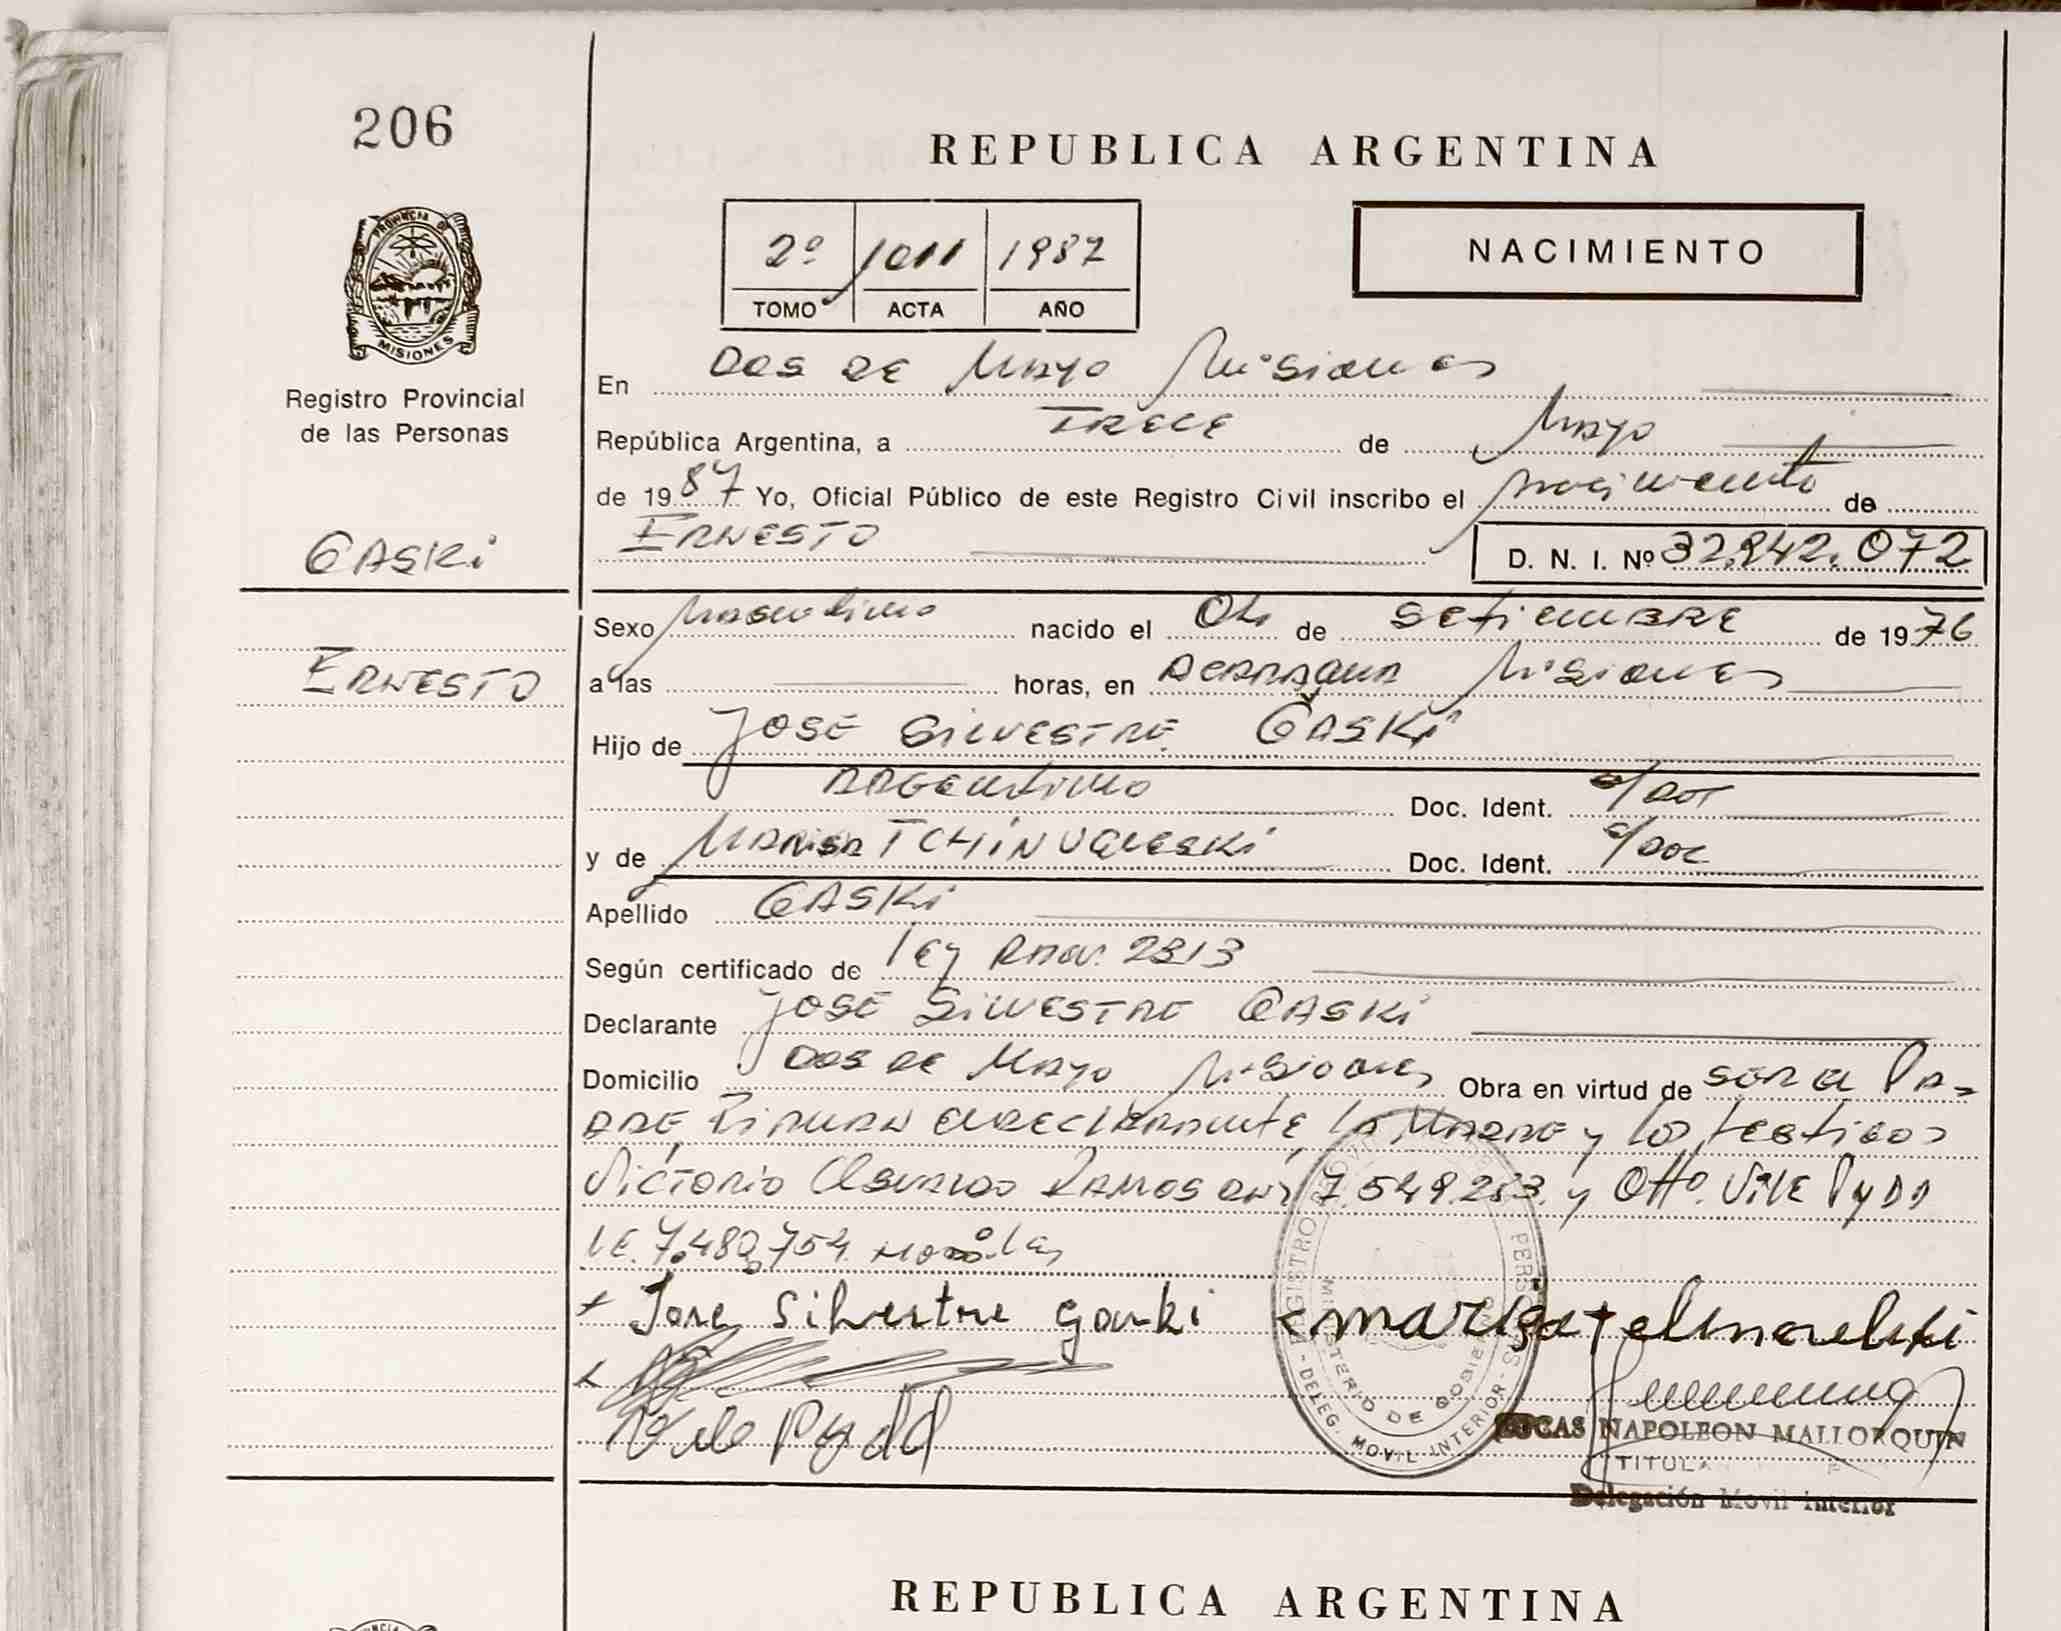 206
REPUBLICA ARGENTINA
PROVINCIA DE
MISIONES
2º 1011 1987
TOMO ACTA AÑO
NACIMIENTO
Registro Provincial
de las Personas
En Dos de Mayo Misiones
República Argentina, a TRECE de Mayo
de 1987 Yo, Oficial Público de este Registro Civil inscribo el nacimiento de
GASKi
ERNESTO D. N. I. Nº 32.842.072
Sexo Masculino nacido el 04 de SEtiEMBRE de 1976
ERNESTO
a las horas, en Misiones
Hijo de JOSE SiLVESTRE GASKi
ARGENtiNo Doc. Ident. s/Doc
y de Doc. Ident. s/Doc
Apellido GASKi
Según certificado de ley 2813
Declarante JOSÉ SiLVESTRE GASKi
Domicilio Dos de Mayo Misiones Obra en virtud de SER el PA-
DRE, FiRMAN el DEClARANtE, lA MADRE y los testigos
Victorio Osvaldo RAMOS DNI 7.549.283. y Otto Vile Pydd
LE. 7.480.754.
Jose Silvestre gaski
Vile Pydd
REGISTRO PROVINCIAL DE LAS PERSONAS - DELEG. MOVIL INTERIOR
MINISTERIO DE GOBIERNO
LUCAS NAPOLEON MALLORQUIN
TITULAR
Delegación Movil Interior
REPUBLICA ARGENTINA